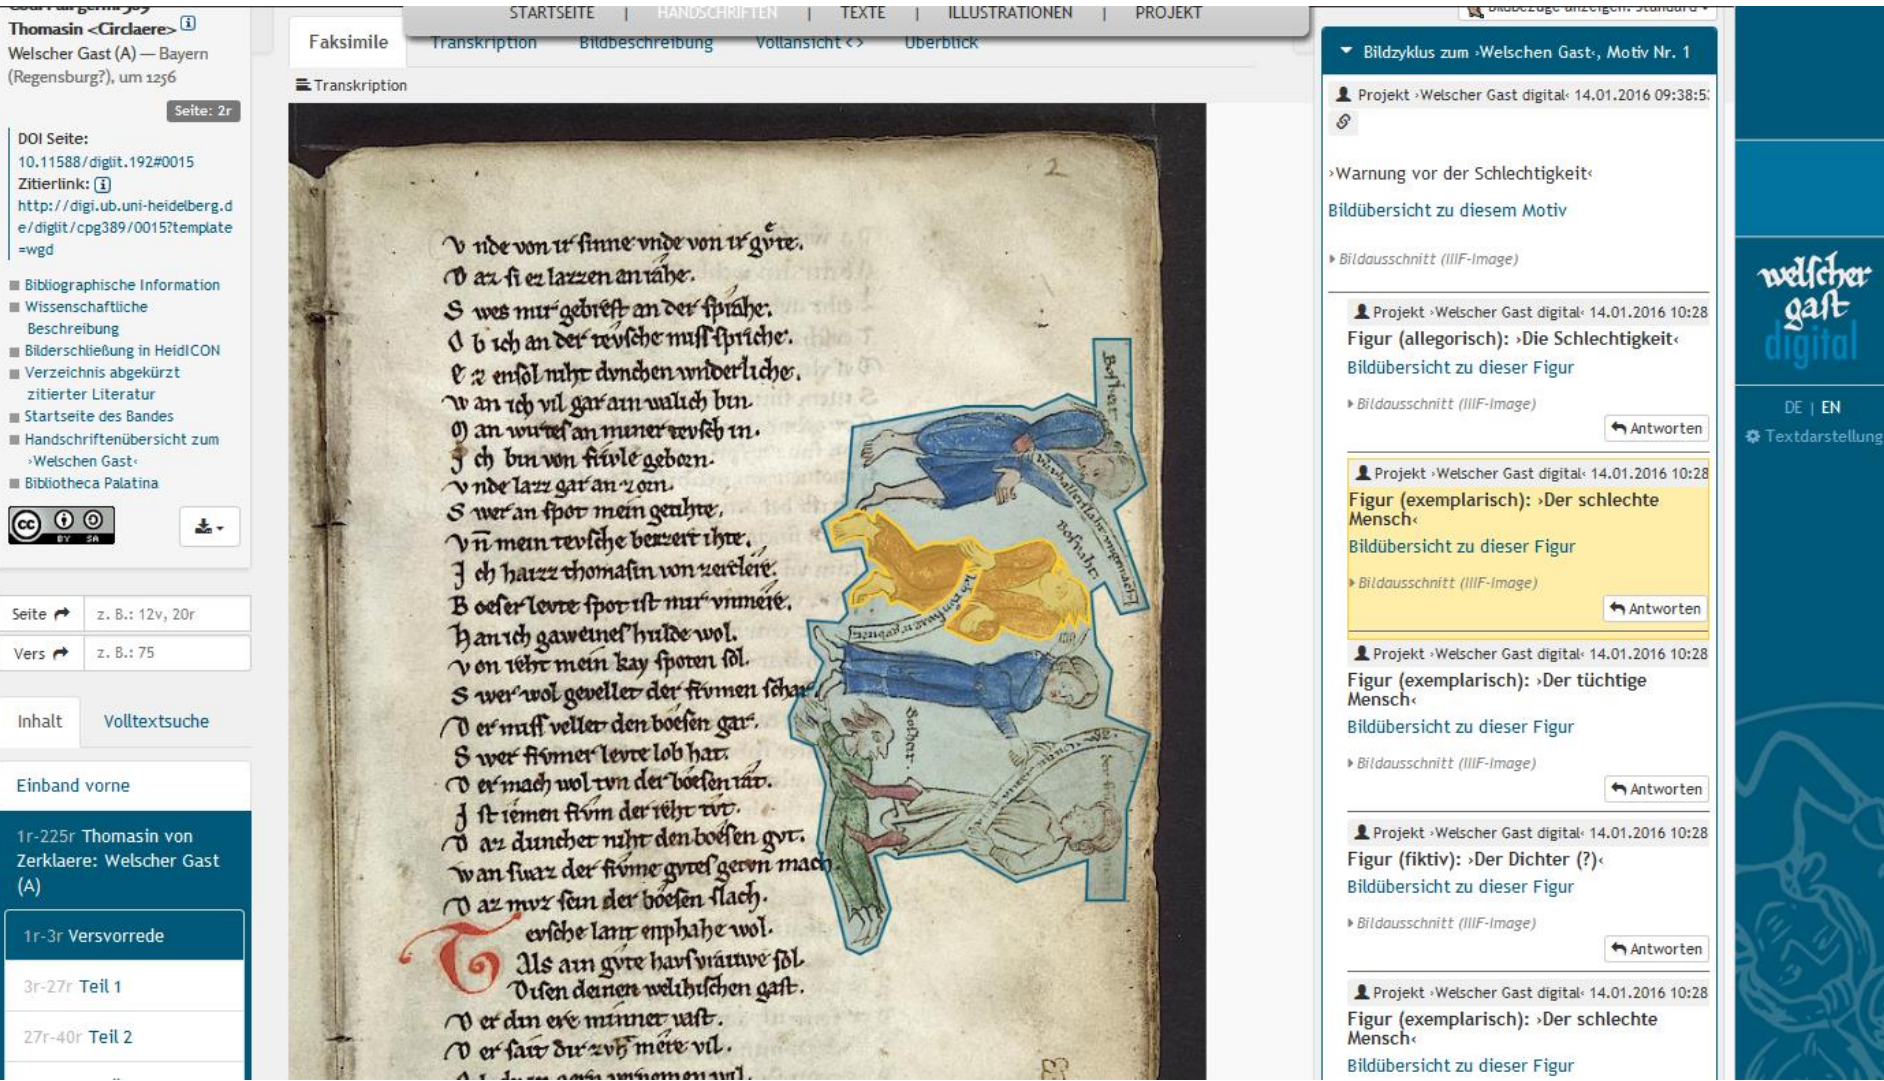 STARTSEITE | HANDSCHRIFTEN | TEXTE | ILLUSTRATIONEN | PROJEKT
Thomasin <Circlaere>
Welscher Gast (A) — Bayern
(Regensburg?), um 1256
Seite: 2r
DOI Seite:
10.11588/diglit.192#0015
Zitierlink:
http://digi.ub.uni-heidelberg.d
e/diglit/cpg389/0015?template
=wgd
Bibliographische Information
Wissenschaftliche
Beschreibung
Bilderschließung in HeidICON
Verzeichnis abgekürzt
zitierter Literatur
Startseite des Bandes
Handschriftenübersicht zum
›Welschen Gast‹
Bibliotheca Palatina
cc BY SA
Seite z. B.: 12v, 20r
Vers z. B.: 75
Inhalt Volltextsuche
Einband vorne
1r-225r Thomasin von
Zerklaere: Welscher Gast
(A)
1r-3r Versvorrede
3r-27r Teil 1
27r-40r Teil 2
Faksimile Transkription Bildbeschreibung Vollansicht <> Überblick
Transkription
2
V nde von ir sinne vnde von ir gvͦte.
D az si ez lazzen an iahe.
S wes mir gebrest an der sprahe.
O b ich an der tevsche miss spriche.
E z ensol niht dvnchen wnderliche.
w an ich vil gar ain walich bin.
M an wirt es an miner tevsch in.
J ch bin von frivle geborn.
v nde lazz gar an zorn.
S wer an spot mein getihte.
V n̄ mein tevsche bezzert ihte.
J ch haizz thomasin von zerclere.
B oeser levte spot ist mir vnmere.
H an ich gaweines hulde wol.
v on reht mein kay spoten sol.
S wer wol gevellet der frvmen schar.
D er muss vellet den boesen gar.
S wer frvmer levte lob hat.
D er mach wol tvn der boesen rat.
J st iemen frvm der reht tvt.
D az dunchet niht den boesen gvt.
w an swaz der frvme gvtes getvn mach
D az mvz sein der boesen slach.
Tevsche lant enphahe wol.
Als ain gvte havsvrauwe sol
Disen deinen welhischen gast.
D er din ere minnet vast.
D er sait dir zvht mere vil.
Bosheit
Bosheit.
Bildzyklus zum ›Welschen Gast‹, Motiv Nr. 1
Projekt ›Welscher Gast digital‹ 14.01.2016 09:38:53
›Warnung vor der Schlechtigkeit‹
Bildübersicht zu diesem Motiv
Bildausschnitt (IIIF-Image)
Projekt ›Welscher Gast digital‹ 14.01.2016 10:28
Figur (allegorisch): ›Die Schlechtigkeit‹
Bildübersicht zu dieser Figur
Bildausschnitt (IIIF-Image)
Antworten
Projekt ›Welscher Gast digital‹ 14.01.2016 10:28
Figur (exemplarisch): ›Der schlechte
Mensch‹
Bildübersicht zu dieser Figur
Bildausschnitt (IIIF-Image)
Antworten
Projekt ›Welscher Gast digital‹ 14.01.2016 10:28
Figur (exemplarisch): ›Der tüchtige
Mensch‹
Bildübersicht zu dieser Figur
Bildausschnitt (IIIF-Image)
Antworten
Projekt ›Welscher Gast digital‹ 14.01.2016 10:28
Figur (fiktiv): ›Der Dichter (?)‹
Bildübersicht zu dieser Figur
Bildausschnitt (IIIF-Image)
Antworten
Projekt ›Welscher Gast digital‹ 14.01.2016 10:28
Figur (exemplarisch): ›Der schlechte
Mensch‹
Bildübersicht zu dieser Figur
welscher
gast
digital
DE | EN
Textdarstellung